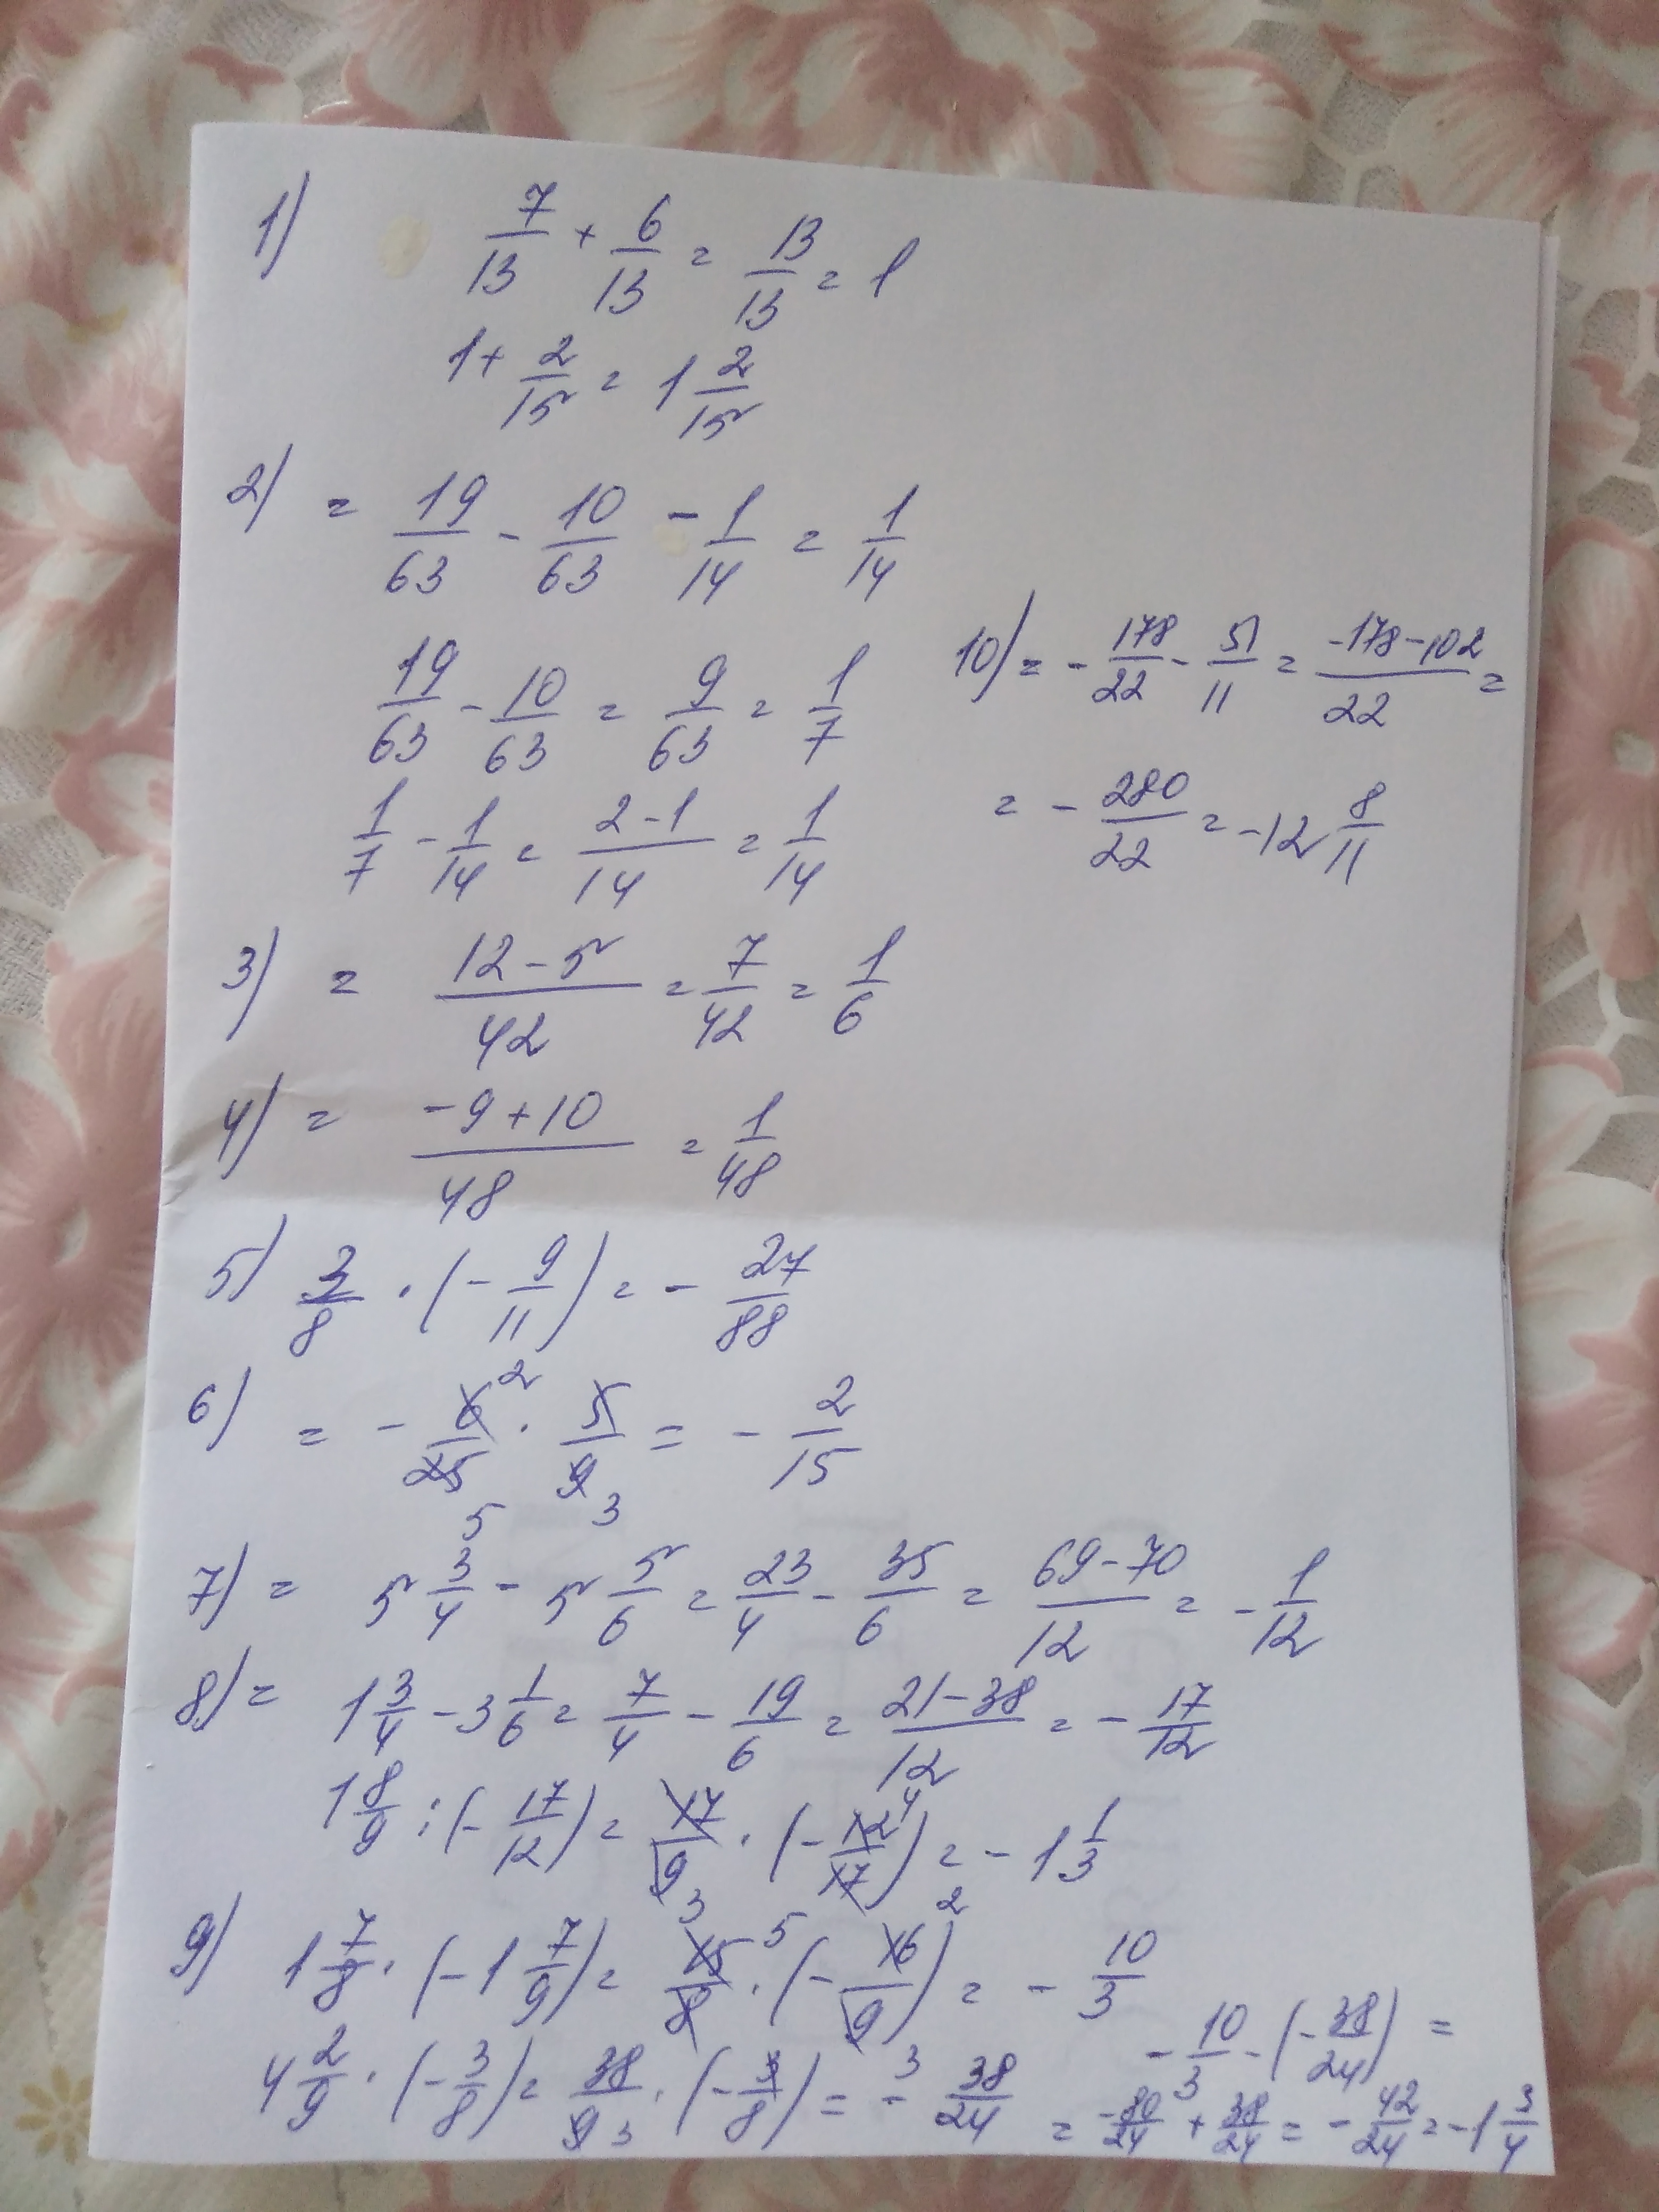 1) 7/13 + 6/13 = 13/13 = 1
1 + 2/15 = 1 2/15
2) = 19/63 - 10/63 - 1/14 = 1/14
19/63 - 10/63 = 9/63 = 1/7
1/7 - 1/14 = (2-1)/14 = 1/14
3) = (12-5)/42 = 7/42 = 1/6
4) = (-9+10)/48 = 1/48
5) 3/8 · (-9/11) = -27/88
6) = -6/25 · 5/9 = -2/15
2
5 3
7) = 5 3/4 - 5 5/6 = 23/4 - 35/6 = (69-70)/12 = -1/12
8) = 1 3/4 - 3 1/6 = 7/4 - 19/6 = (21-38)/12 = -17/12
1 8/9 : (-17/12) = 17/9 · (-12/17) = -1 1/3
4
3
9) 1 7/8 · (-1 7/9) = 15/8 · (-16/9) = -10/3
5 2
3
4 2/9 · (-3/8) = 38/9 · (-3/8) = -38/24
3
-10/3 - (-38/24) =
= -80/24 + 38/24 = -42/24 = -1 3/4
10) = -178/22 - 51/11 = (-178-102)/22 =
= -280/22 = -12 8/11